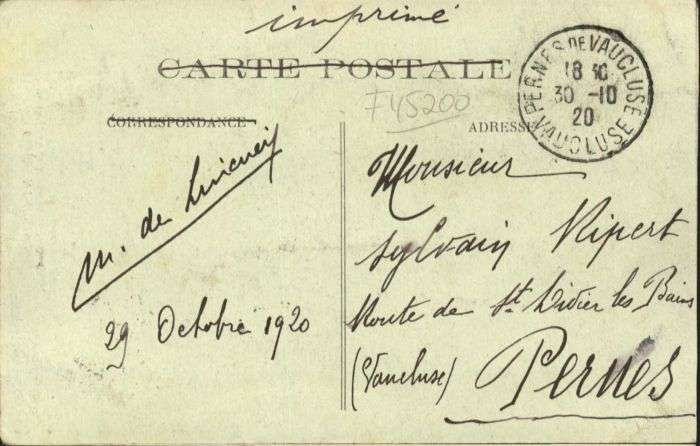 imprimé
CARTE POSTALE
F45200
PERNES DE VAUCLUSE
18
30 -10
20
VAUCLUSE
CORRESPONDANCE
ADRESSE
M. de
29 Octobre 1920
Monsieur
Sylvain Ripert
Route de St. Didier les Bains
(Vaucluse) Pernes